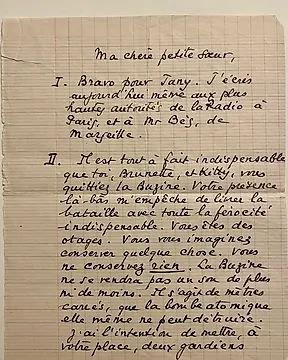 Ma chère petite Sœur,
I. Bravo pour Tany. J'écris
aujourd'hui même aux plus
hautes autorités de la Radio à
Paris, et à Mr Bès, de
Marseille.
II. Il est tout à fait indispensable
que toi, Brunette, et Kitty, vous
quittiez la Buzine. Votre présence
là-bas m'empêche de livrer la
bataille avec toute la férocité
indispensable. Vous êtes des
otages. Vous vous imaginez
conserver quelque chose. Vous
ne conservez rien. La Buzine
ne se rendra pas un sou de plus
ni de moins. Il s'agit de mètres
carrés, que la bombe atomique
elle même ne peut détruire.
J'ai l'intention de mettre, à
votre place, deux gardiens